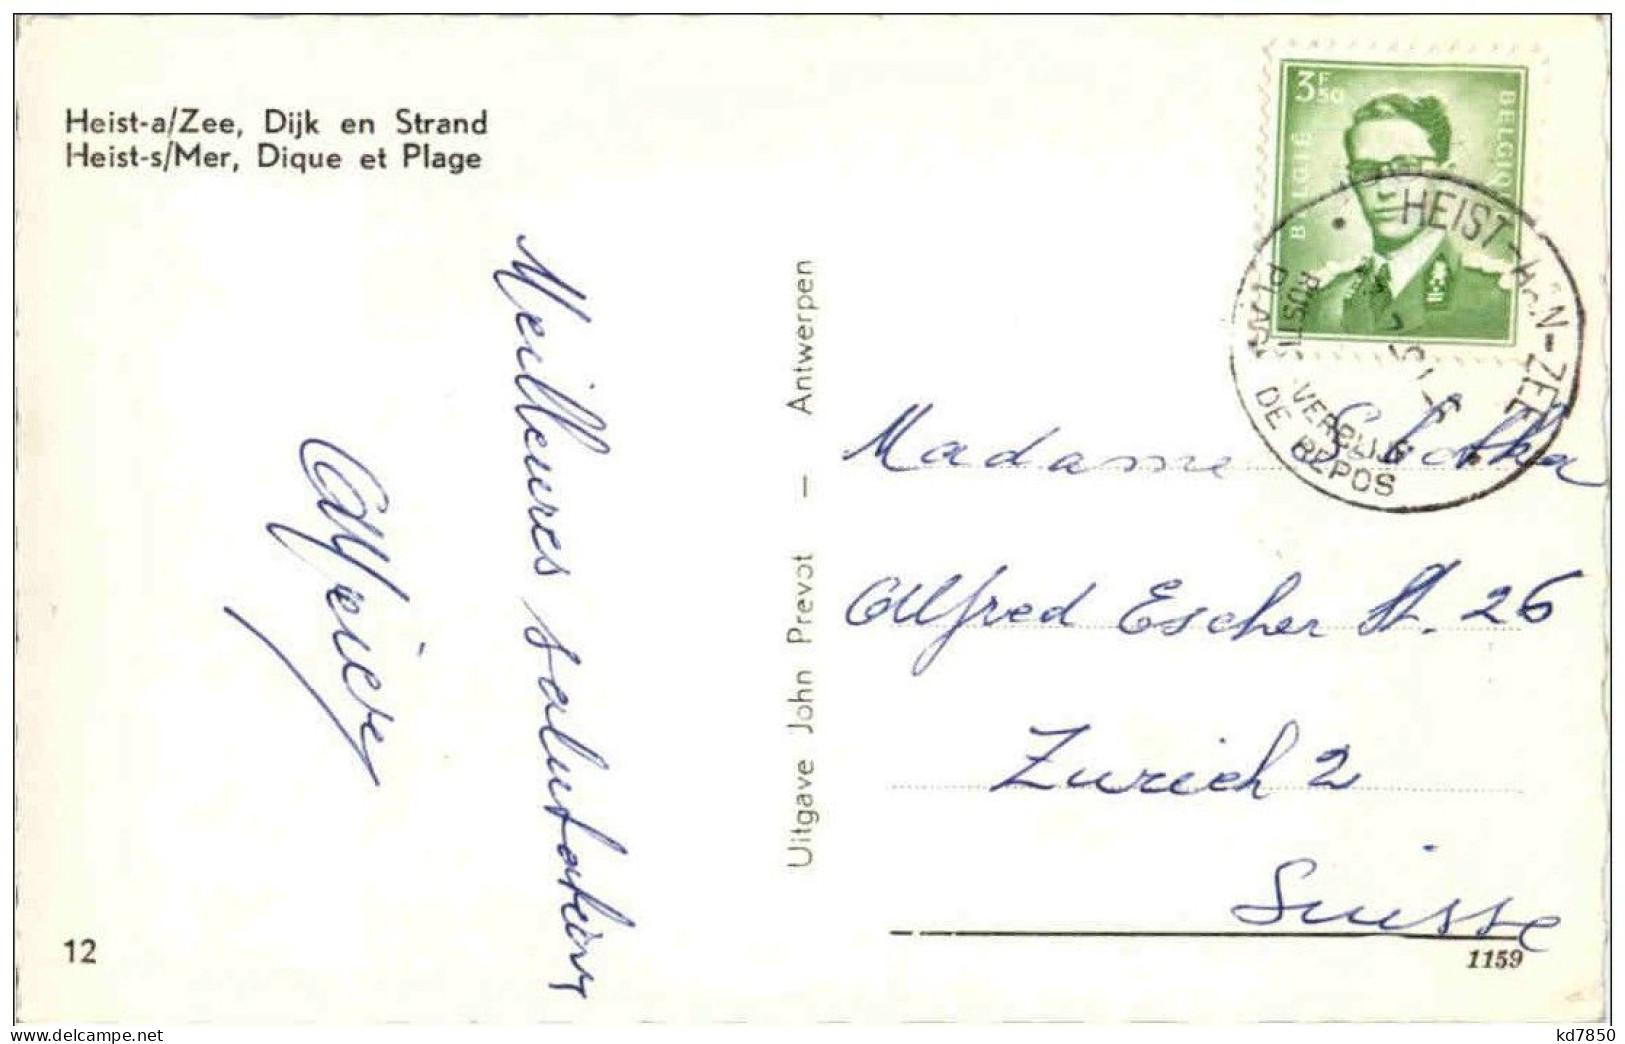 Heist-a/Zee, Dijk en Strand
Heist-s/Mer, Dique et Plage
3F50
BELGIË
BELGIQUE
HEIST-AAN-ZEE
RUST VERBLIJF
DE REPOS
Meilleures salutations
Uitgave John Prevot — Antwerpen
Madame
Alfred Escher St. 26
Zurich 2
Suisse
12
1159
delcampe.net
kd7850